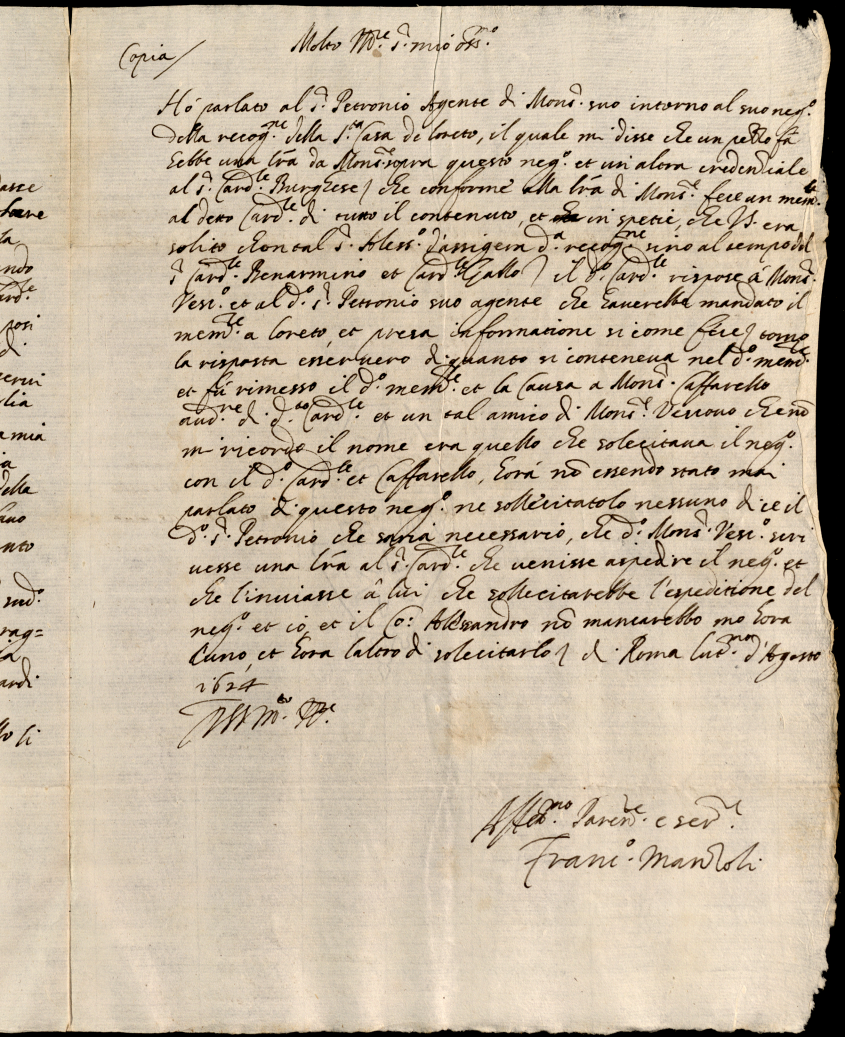 Copia/
Molto Ill.re S.r mio oss.mo
Hò parlato al S.r Petronio Agente di Mons.r suo intorno al suo neg.o
della recog.ne della S.ta Casa de loreto, il quale mi disse che un pezzo fà
hebbe una lr̃a da Mons.r sopra questo neg.o et un altra credenziale
al S.r Card.le Burghese/ che conforme alla lr̃a di Mons.r fece un mem.le
al detto Card.le di tutto il contenuto, et in spetie, che VS. era
solito d.a recog.ne sino al tempo del
S.r Card.le Benarmino et Card.le Gallo/ il d.o Card.le rispose à Mons.r
Vesc.o et al d.o S.r Petronio suo agente che haverebbe mandato il
mem.le a loreto, et presa informatione si come fece/ torno
la risposta esser vero di quanto si conteneva nel d.o mem.le
et fù rimesso il d.o mem.le et la Causa a Mons.r Caffarello
aud.re di d.to Card.le et un tal amico di Mons.r Vescovo che nō
mi ricordo il nome era quello che solecitava il neg.o
con il d.o Card.le et Caffarello, horà nō essendo stato mai
parlato di questo neg.o ne sollecitatolo nessuno dice il
d.o S.r Petronio che saria necessario, che d.o Mons.r Vesc.o scri
vesse una lr̃a al S.r Card.le che venisse aspedire il neg.o et
che l'inviasse à lui che sollecitarebbe l'espeditione del
neg.o et iò, et il Alessandro nō mancarebbo mo hora
l'uno, et hora l'altro di solecitarlo/ di Roma d'Agosto
1624
DVS m.to Ill.re
Affett.mo Paren.te e ser.re
Franc.o Manzoli
dasse
la
ando
posi
di
servi
glia
a mia
della
ento
sud.o
rag=